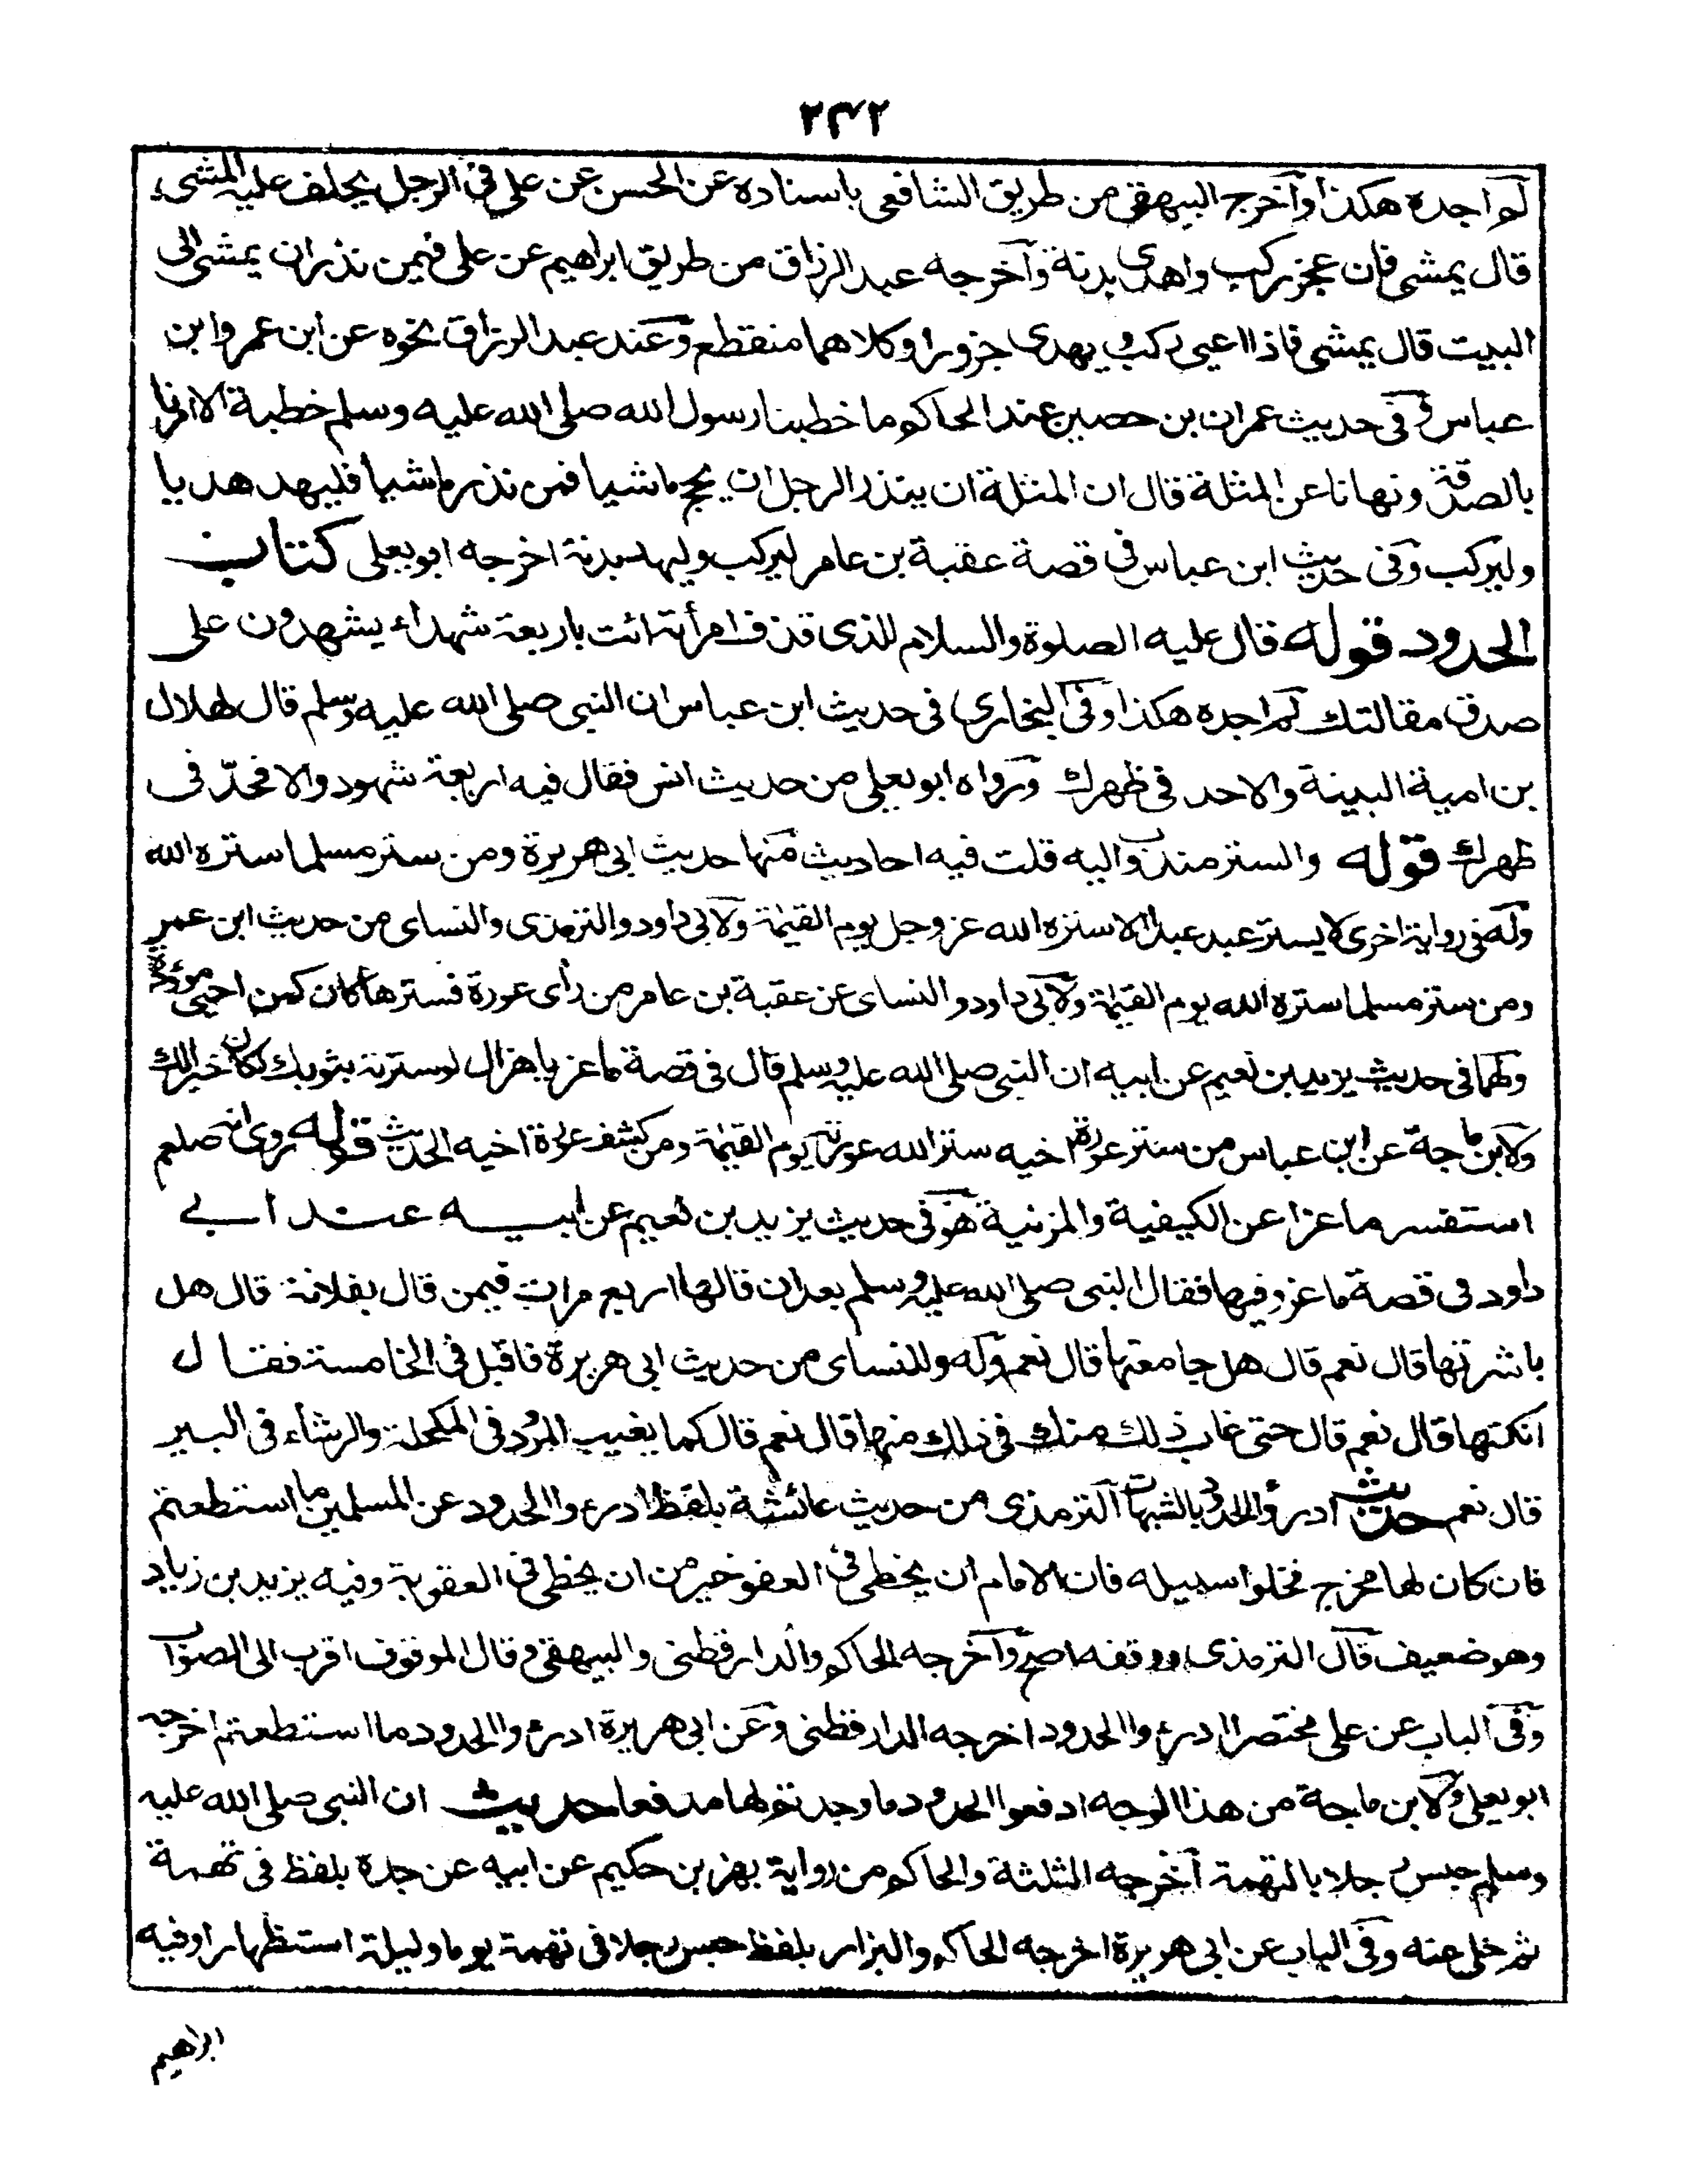 ٢٤٢
لم اجده هكذا وآخرج البيهقى من طريق الشافعى باسناده عن الحسن عن على فى الرجل يحلف عليه المشى
قال يمشى فان عجز ركب واهدى بدنة وآخرجه عبد الرزاق من طريق ابراهيم عن على فيمن نذر ان يمشى الى
البيت قال يمشى فاذا اعيى ركب ويهدى جزورا وكلاهما منقطع وعند عبد الرزاق نحوه عن ابن عمر وابن
عباس وفى حديث عمران بن حصين عند الحاكم ما خطبنا رسول الله صلى الله عليه وسلم خطبة الا امرنا
بالصدقة ونهانا عن المثلة قال ان المثلة ان ينذر الرجل ان يحج ماشيا فمن نذر ماشيا فليهد هديا
وليركب وفى حديث ابن عباس فى قصة عقبة بن عامر ليركب وليهد بدنة اخرجه ابو يعلى كتاب
الحدود قوله قال عليه الصلوة والسلام للذى قذف امرأته ائت باربعة شهداء يشهدون على
صدق مقالتك لم اجده هكذا وفى البخارى فى حديث ابن عباس ان النبى صلى الله عليه وسلم قال لهلال
بن امية البينة والا حد فى ظهرك ورواه ابو يعلى من حديث انس فقال فيه اربعة شهود والا فحدّ فى
ظهرك قوله والستر مندوب اليه قلت فيه احاديث منها حديث ابى هريرة ومن ستر مسلما ستره الله
وله فى رواية اخرى لا يستر عبد عبدا الا ستره الله عز وجل يوم القيمة ولابى داود والترمذى والنساى من حديث ابن عمر
ومن ستر مسلما ستره الله يوم القيمة ولابى داود والنساى عن عقبة بن عامر من رأى عورة فسترها كان كمن احيى موؤدة
ولهما فى حديث يزيد بن نعيم عن ابيه ان النبى صلى الله عليه وسلم قال فى قصة ماعز يا هزال لو سترته بثوبك لكان خيرا لك
ولابن ماجة عن ابن عباس من ستر عورة اخيه ستر الله عورته يوم القيمة ومن كشف عورة اخيه الحديث قوله روى انه صلعم
استفسر ماعزا عن الكيفية والمزنية هو فى حديث يزيد بن نعيم عن ابيه عند ابى
داود فى قصة ماعز وفيها فقال النبى صلى الله عليه وسلم بعد ان قالها اربع مرات فيمن قال بفلانة قال هل
باشرتها قال نعم قال هل جامعتها قال نعم وله وللنساى من حديث ابى هريرة فاقبل فى الخامسة فقال
انكتها قال نعم قال حتى غاب ذلك منك فى ذلك منها قال نعم قال كما يغيب المرود فى المكحلة والرشاء فى البير
قال نعم حديث ادرؤا الحدود بالشبهات الترمذى من حديث عائشة بلفظ ادرءوا الحدود عن المسلمين ما استطعتم
فان كان لها مخرج فخلوا سبيله فان الامام ان يخطى فى العفو خير من ان يخطى فى العقوبة وفيه يزيد بن زياد
وهو ضعيف قال الترمذى ووقفه اصح وآخرجه الحاكم والدارقطنى والبيهقى وقال الموقوف اقرب الى الصواب
وفى الباب عن على مختصرا ادرءوا الحدود اخرجه الدارقطنى وعن ابى هريرة ادرءوا الحدود ما استطعتم اخرجه
ابو يعلى ولابن ماجة من هذا الوجه ادفعوا الحدود ما وجدتم لها مدفعا حديث ان النبى صلى الله عليه
وسلم حبس رجلا بالتهمة آخرجه الثلثة والحاكم من رواية بهز بن حكيم عن ابيه عن جده بلفظ فى تهمة
ثم خلى عنه وفى الباب عن ابى هريرة اخرجه الحاكم والبزار بلفظ حبس رجلا فى تهمة يوما وليلة استظهارا وفيه
ابراهيم